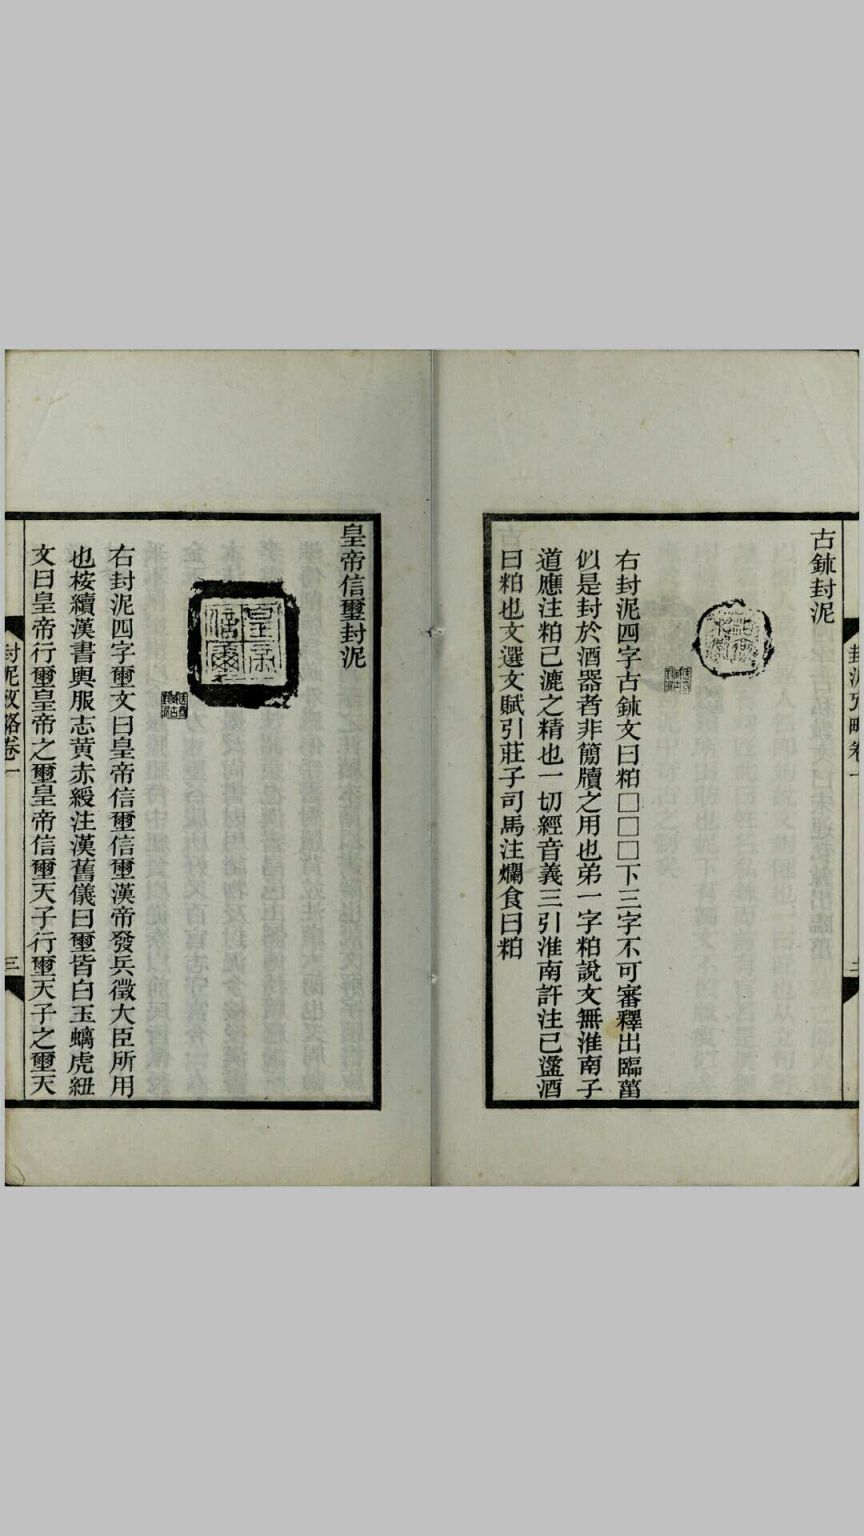 古鉥封泥
右封泥四字古鉥文曰粕□□□下三字不可審釋出臨菑
似是封於酒器者非簡牘之用也弟一字粕說文無淮南子
道應注粕已漉之精也一切經音義三引淮南許注已盪酒
曰粕也文選文賦引莊子司馬注爛食曰粕
封泥攷略卷一
三
皇帝信璽封泥
皇帝信璽
右封泥四字璽文曰皇帝信璽信璽漢帝發兵徵大臣所用
也桉續漢書輿服志黃赤綬注漢舊儀曰璽皆白玉螭虎紐
文曰皇帝行璽皇帝之璽皇帝信璽天子行璽天子之璽天
封泥攷略卷一
三